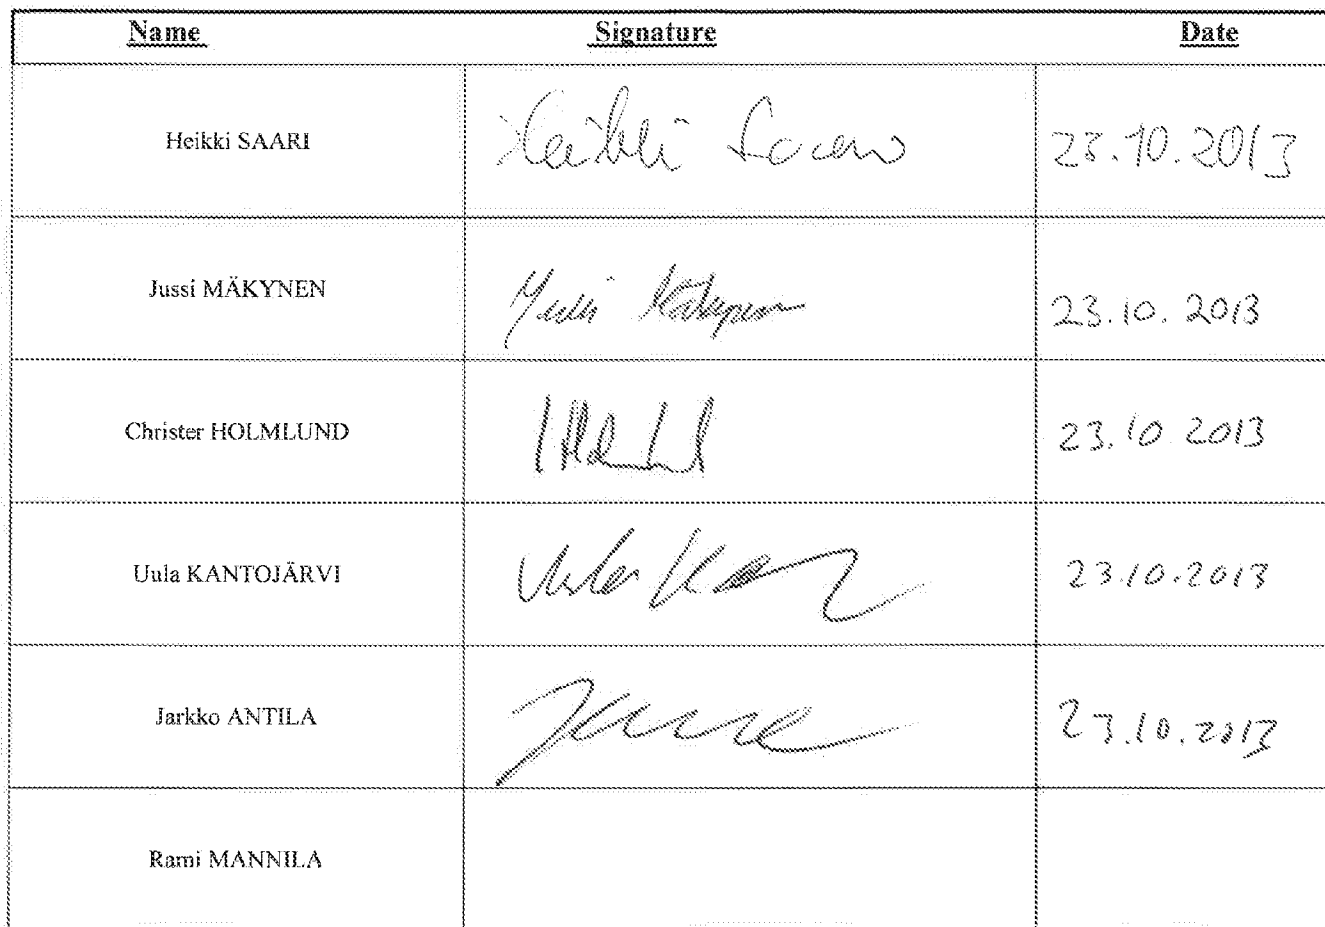 Name Signature Date
Heikki SAARI Heikki Saari 23.10.2013
Jussi MÄKYNEN Jussi Mäkynen 23.10.2013
Christer HOLMLUND 23.10.2013
Uula KANTOJÄRVI Uula 23.10.2013
Jarkko ANTILA 23.10.2013
Rami MANNILA